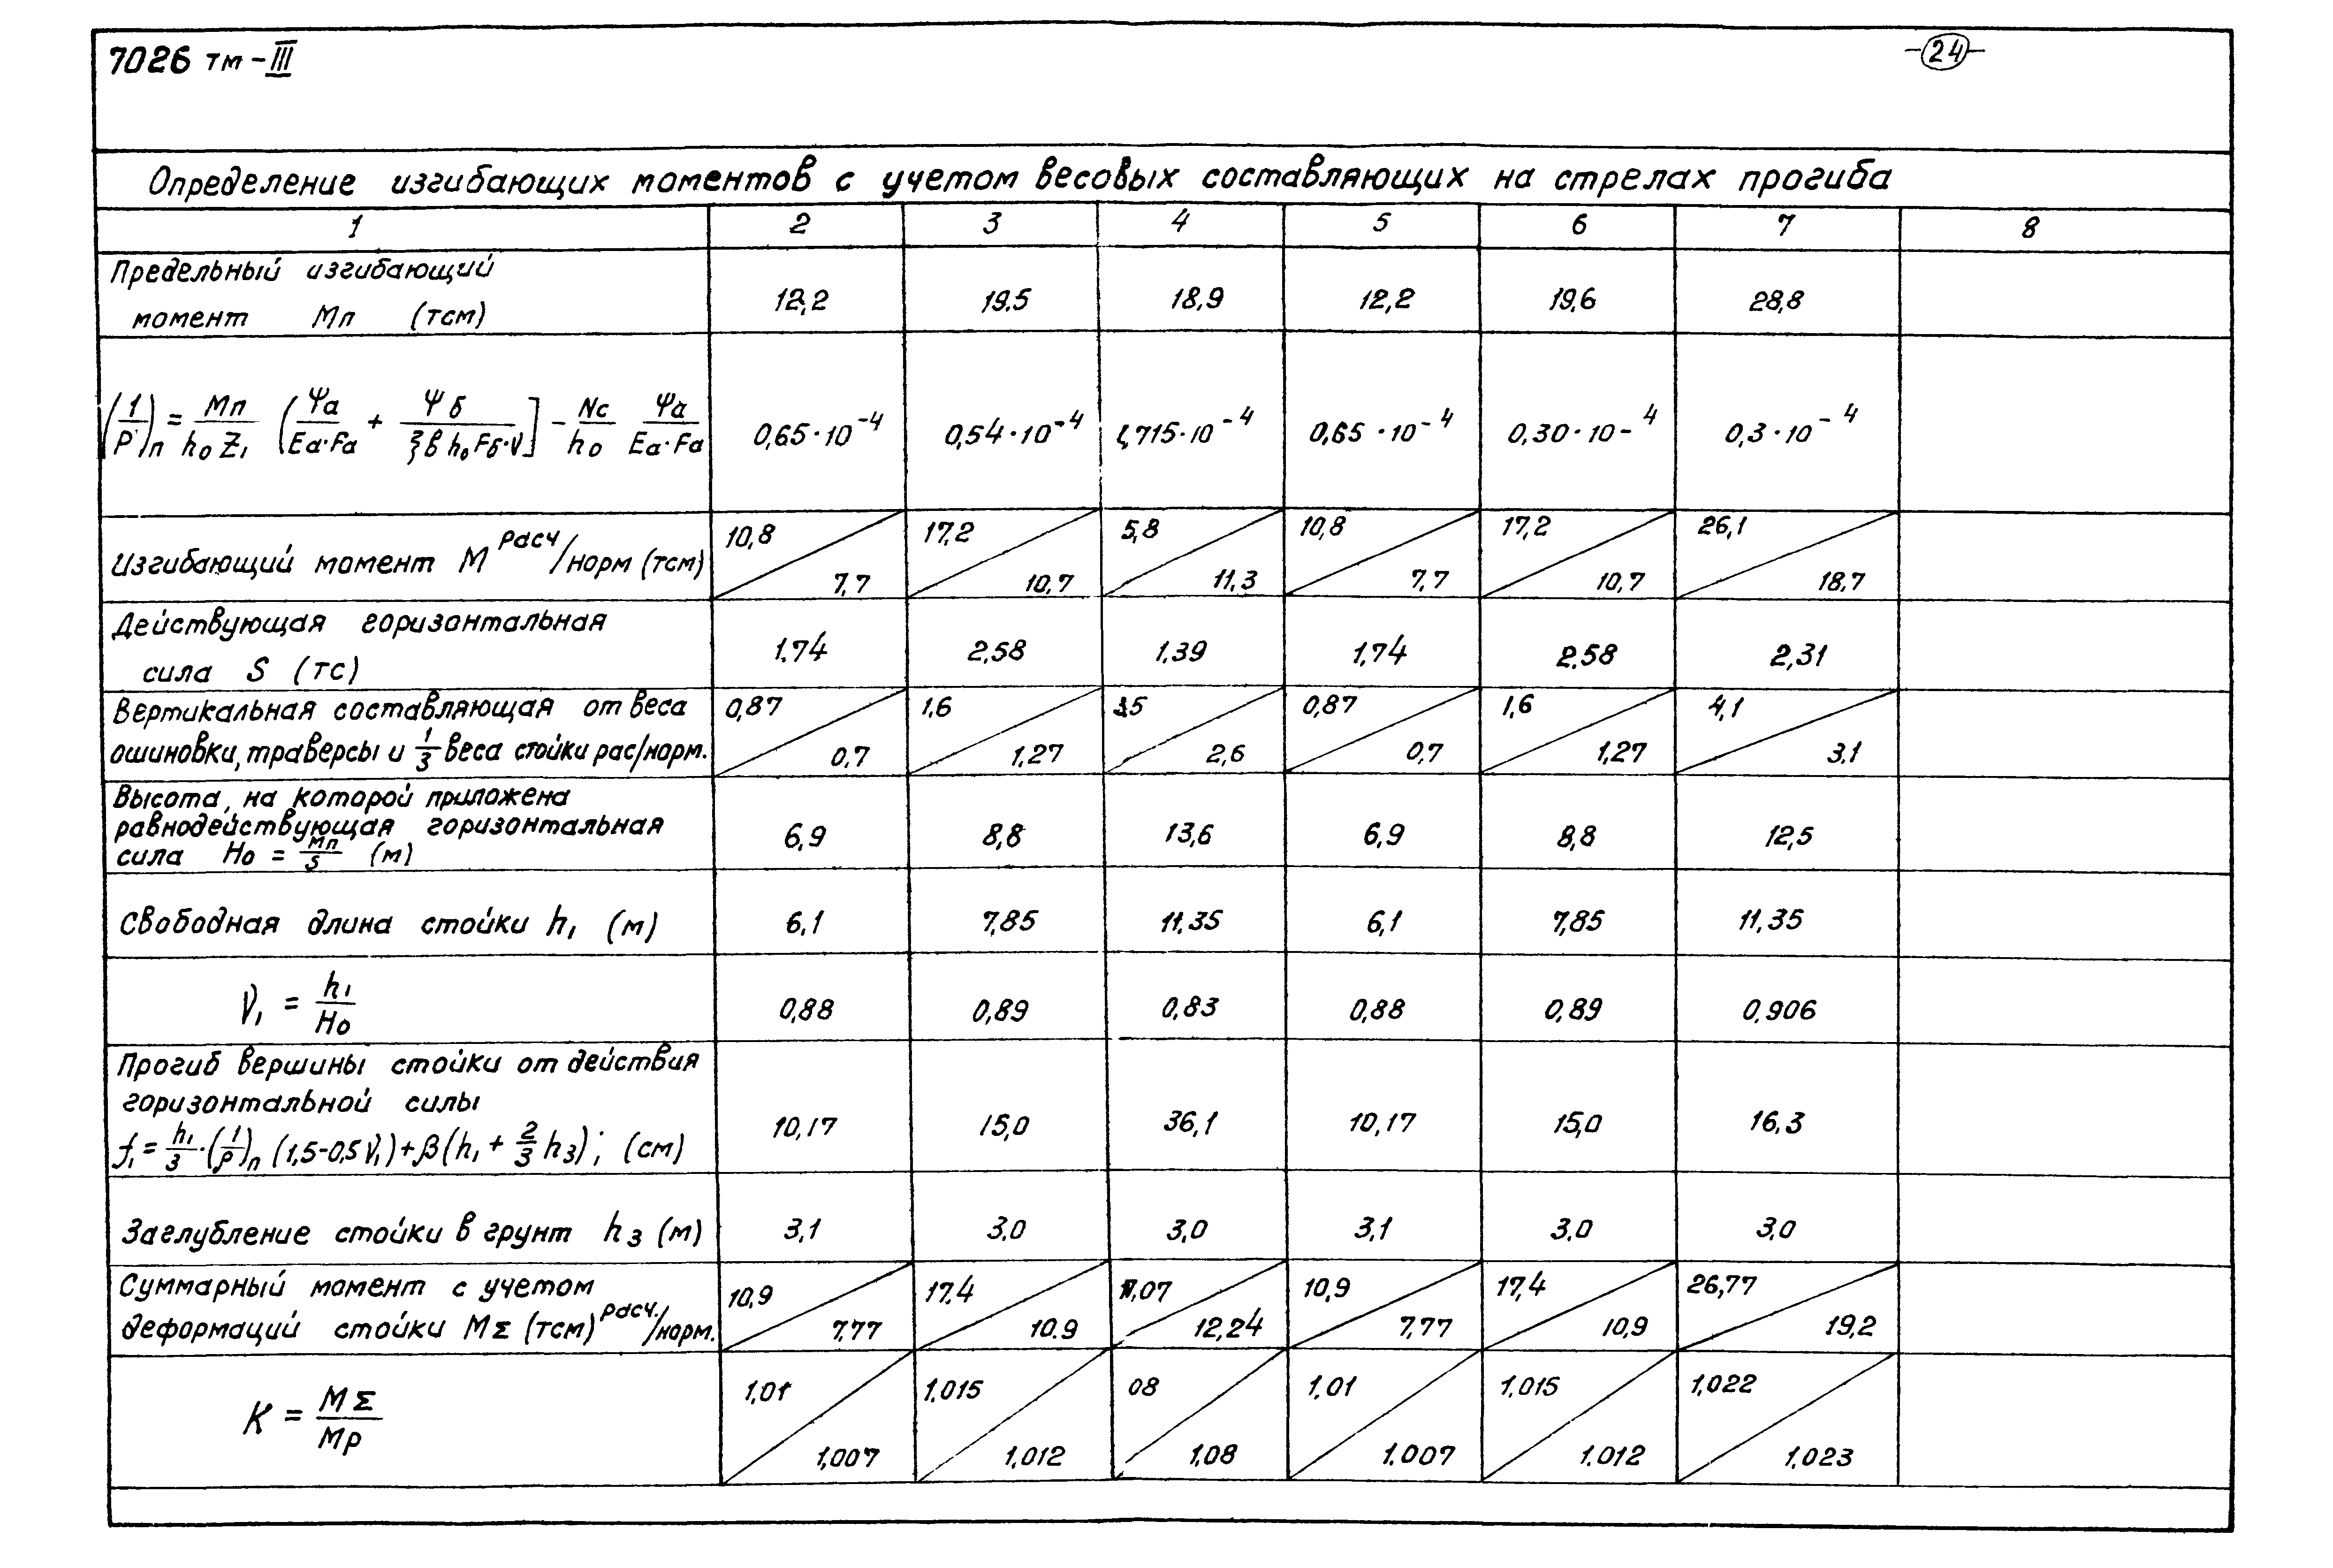 7026 тм-III
-24-
Определение изгибающих моментов с учетом весовых составляющих на стрелах прогиба
1 2 3 4 5 6 7 8
Предельный изгибающий
момент Mп (тсм) 12,2 19.5 18,9 12,2 19,6 28,8
(1/ρ)п = Mп/h₀Z₁ (Ψа/Eа·Fа + Ψб/ξβh₀Fб·ν] - Nc/h₀ Ψа/Eа·Fа 0,65·10⁻⁴ 0,54·10⁻⁴ ,715·10⁻⁴ 0,65·10⁻⁴ 0,30·10⁻⁴ 0,3·10⁻⁴
Изгибающий момент M расч/норм (тсм) 10,8 / 7,7 17,2 / 10,7 5,8 / 11,3 10,8 / 7,7 17,2 / 10,7 26,1 / 18,7
Действующая горизонтальная
сила S (тс) 1.74 2,58 1,39 1,74 2.58 2,31
Вертикальная составляющая от веса
ошиновки, траверсы и 1/3 веса стойки рас/норм. 0,87 / 0,7 1,6 / 1,27 3,5 / 2,6 0,87 / 0,7 1,6 / 1,27 4,1 / 3,1
Высота, на которой приложена
равнодействующая горизонтальная
сила H₀ = Mп/S (м) 6,9 8,8 13,6 6,9 8,8 12,5
Свободная длина стойки h₁ (м) 6,1 7,85 11.35 6,1 7,85 11,35
ν₁ = h₁/H₀ 0,88 0,89 0,83 0,88 0,89 0,906
Прогиб вершины стойки от действия
горизонтальной силы
f₁ = h₁/3·(1/ρ)п (1,5-0,5ν₁)+β(h₁ + 2/3 h₃); (см) 10,17 15,0 36,1 10,17 15,0 16,3
Заглубление стойки в грунт h₃ (м) 3,1 3,0 3,0 3,1 3,0 3,0
Суммарный момент с учетом
деформаций стойки MΣ (тсм) расч./норм. 10,9 / 7,77 17,4 / 10.9 ,07 / 12,24 10,9 / 7,77 17,4 / 10,9 26,77 / 19,2
K = MΣ/Mр 1,01 / 1,007 1,015 / 1,012 08 / 1,08 1,01 / 1.007 1,015 / 1.012 1,022 / 1,023